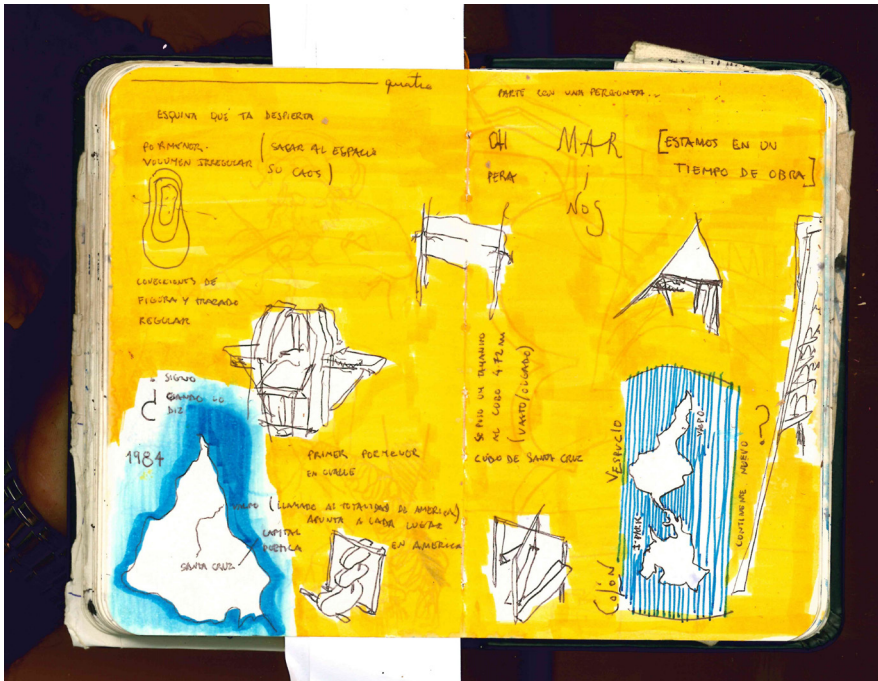 quatro
ESQUINA QUE TA DESPIERTA
PORMENOR.
VOLUMEN IRREGULAR
(SACAR AL ESPACIO
SU CAOS)
CONDICIONES DE
FIGURA Y TRAZADO
REGULAR
SIGNO
CUANDO LO
DIZ
¿
1984
PRIMER PORMENOR
EN
(LLAMADO A LA TOTALIDAD DE AMERICA)
APUNTA A CADA LUGAR
EN AMERICA
CAPITAL
POETICA
SANTA CRUZ
PARTE CON UNA PERGUNTA...
OH
PERA
MAR
i
NOS
[ESTAMOS EN UN
TIEMPO DE OBRA]
SE PUSO UN TAMANHO
AL CUBO 4.72 m
(VASTO/HOLGADO)
CUBO DE SANTA CRUZ
VESPUCIO
COLÓN
CONTINENTE NUEVO
?